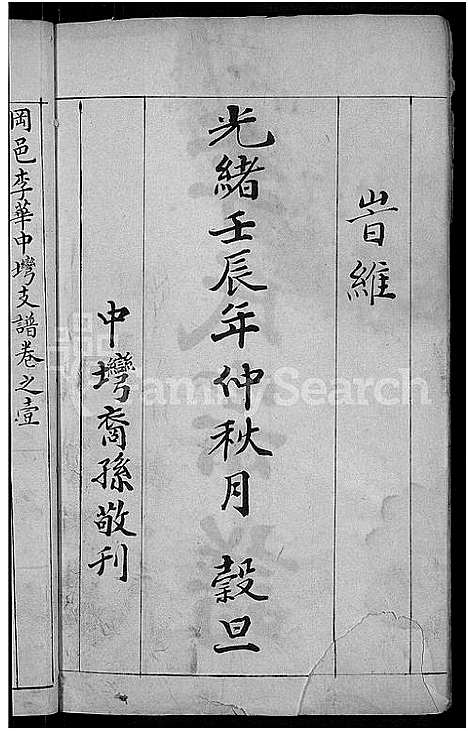 旹維
光緒壬辰年仲秋月 榖旦
中塆裔孫敬刋
岡邑李華中塆支譜卷之壹
FamilySearch